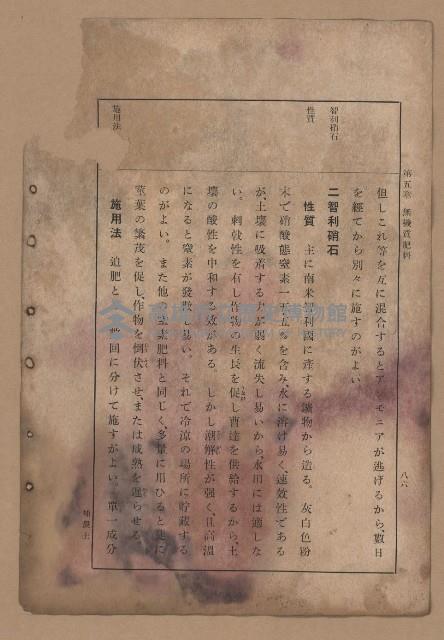 第五章 無機質肥料
八六
智利硝石
性質
施用法
但しこれ等を互に混合するとアンモニアが逃げるから、數日
を經てから別々に施すのがよい。
二智利硝石
性質 主に南米智利國に産する鑛物から造る。灰白色粉
末で硝酸態窒素一五・五%を含み、水に溶け易く、速效性である
が、土壤に吸着する力が弱く流失し易いから、水田には適しな
い。刺戟性を有し作物の生長を促し曹達を供給するから、土
壤の酸性を中和する效がある。しかし潮解性が強く、且高溫
になると窒素が發散し易い。それで冷涼の場所に貯藏する
のがよい。また他の窒素肥料と同じく、多量に用ひると徒に
莖葉の繁茂を促し、作物を倒伏させ、または成熟を遲らせる。
施用法 追肥として數回に分けて施すがよい。單一成分
補農土